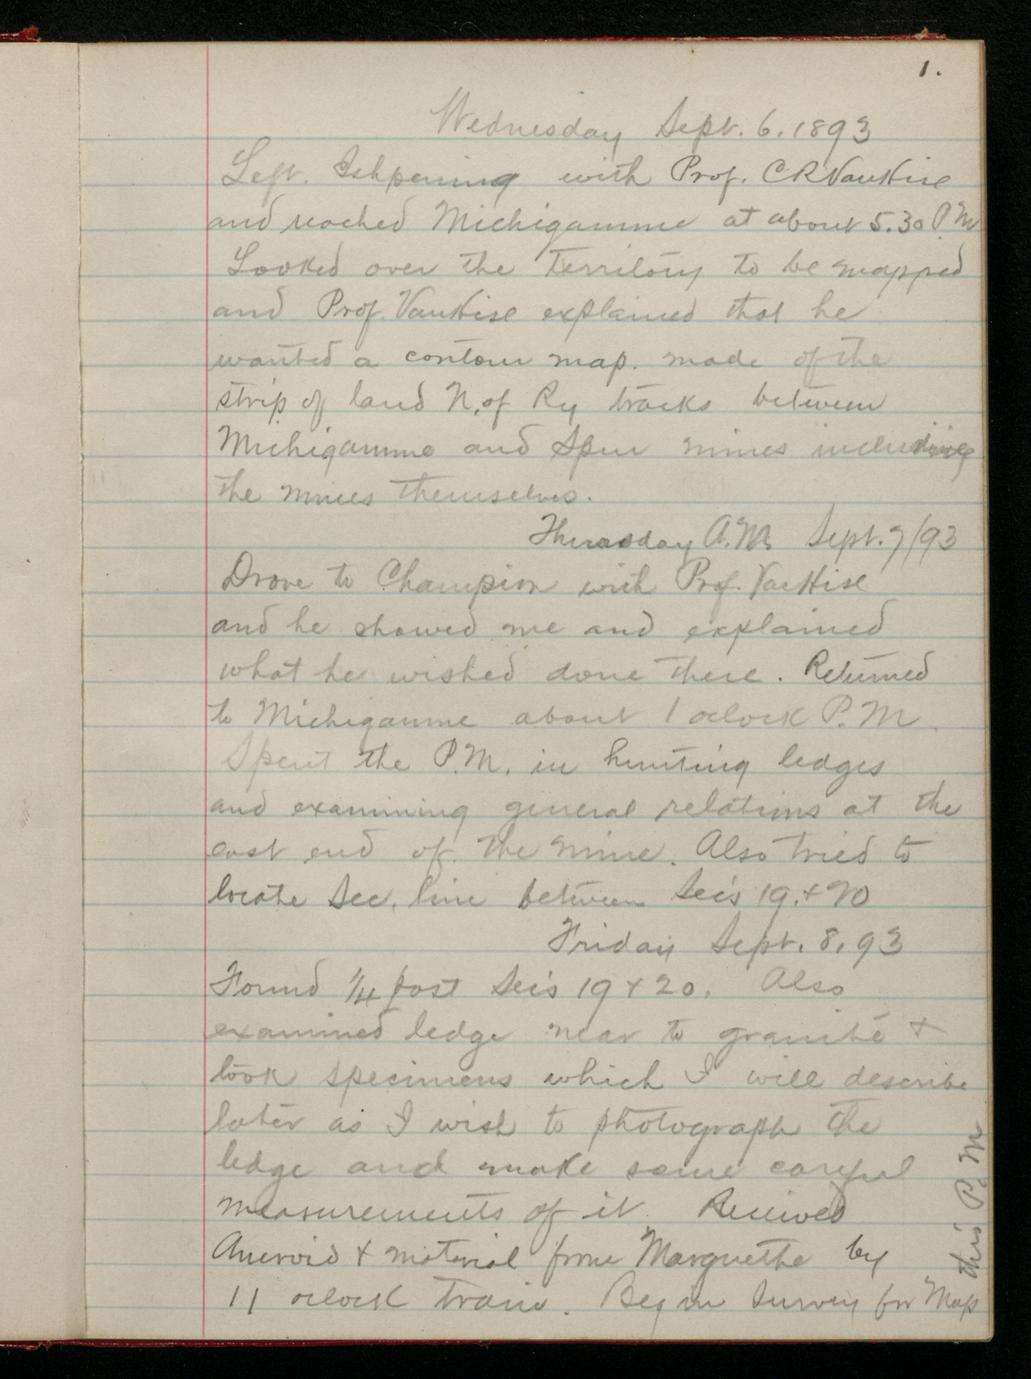 1.
Wednesday Sept. 6. 1893
Left. Ishpeming with Prof. C R Van Hise
and reached Michigamme at about 5.30 P.M
Looked over the Territory to be mapped
and Prof. Van Hise explained that he
wanted a contour map. made of the
strip of land N. of Ry tracks between
Michigamme and Spur mines including
the mines themselves.
Thursday A.M. Sept. 7/93
Drove to Champion with Prof. Van Hise
and he showed me and explained
what he wished done there. Returned
to Michigamme about 1 oclock P.M.
Spent the P.M. in hunting ledges
and examining general relations at the
east end of the mine. Also tried to
locate Sec. line between Sec's 19. + 20
Friday Sept. 8. 93
Found 1/4 post Sec's 19 + 20. Also
examined ledge near to granite +
took specimens which I will describe
later as I wish to photograph the
ledge and make some careful
measurements of it. Received
Aneroid + material from Marquette by
11 oclock train. Begun Survey for Map
this P.M